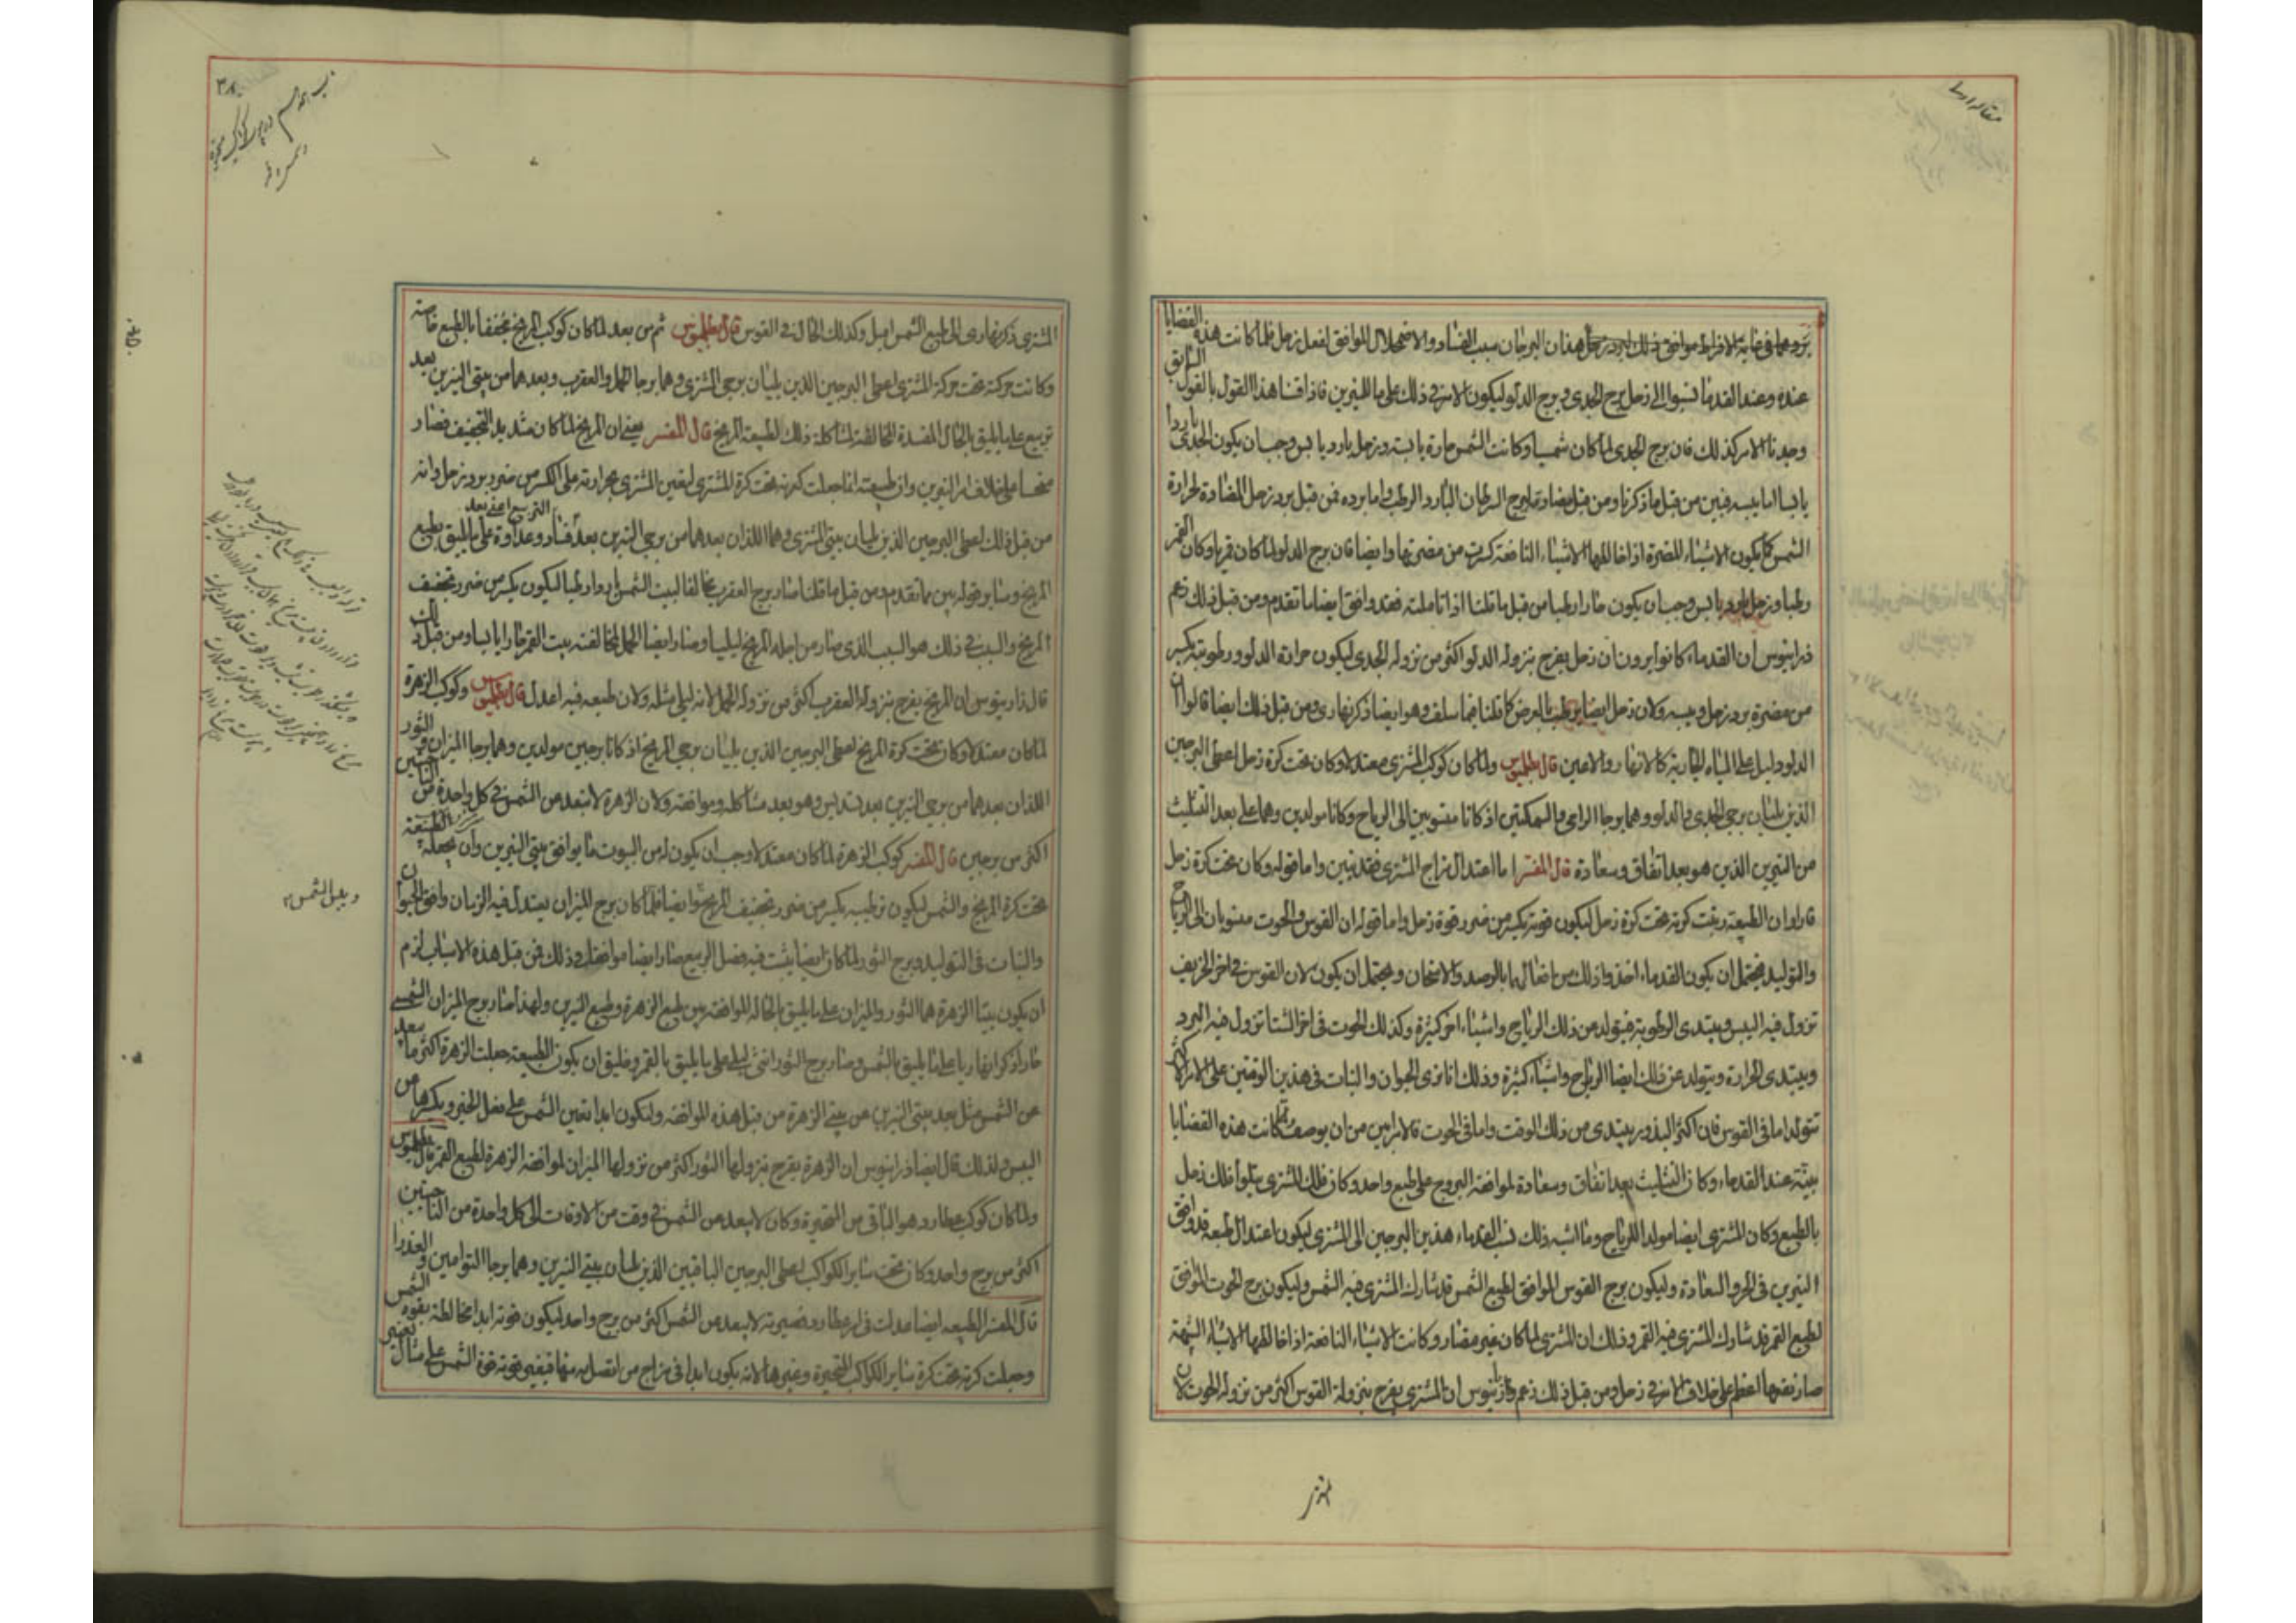 بردهما في غاية الافراط موافق ذلك لبرد زحل هذان البرجان سبب الفساد والاضمحلال الموافق لفعل زحل فلما كانت هذه القضايا
عنده وعند القدما نسبوا الى زحل برج الجدى وبرج الدلو ليكون الامر فى ذلك على ما للنيرين فاذا قسنا هذا القول بالقول السابق
وجدنا الامر كذلك فان برج الجدى لما كان شمسيا وكانت الشمس حارة يابسة وزحل بارد يابس وجب ان يكون الجدى باردا
يابسا اما يبسه فبين من قبل ما ذكرنا ومن قبل مضادته لبرج السرطان البارد الرطب واما برده فمن قبل برد زحل المضادة لحرارة
الشمس كما يكون الاشياء المضرة اذا خالفها الاشياء النافعة كسرت من مضرتها وايضا فان برج الدلو لما كان قمريا وكان القمر
رطبا وزحل بارد يابس وجب ان يكون حارا رطبا من قبل ما قلنا اذا تاملته فقد وافق ايضا ما تقدم ومن قبل ذلك زعم
ذراينوس ان القدماء كانوا يرون ان زحل يفرح بنزوله الدلو اكثر من نزوله الجدى ليكون حرارة الدلو ورطوبته يكسر
من مضرة برد زحل ويبسه ولان زحل ايضا يرطب بالعرض كما قلنا فيما سلف وهو ايضا ذكر نهارى ومن قبل ذلك ايضا قالوا ان
الدلو دليل على المياه الجارية كالانهار والاعين قال بطلميوس ولما كان كوكب المشترى معتدلا وكان تحت كرة زحل اعطى البرجين
الذين يليان برجى الجدى والدلو وهما برجا الرامى والسمكتين اذ كانا منسوبين الى الرياح وكانا مولدين وهما على بعد التثليث
من النيرين الذى هو بعد اتفاق وسعادة قال المفسر اما اعتدال مزاج المشترى فقد تبين واما قوله وكان تحت كرة زحل
فاراد ان الطبيعة رتبت كرته تحت كرة زحل ليكون قوته يكسر من ضرر قوة زحل واما قوله ان القوس والحوت منسوبان الى الرياح
والتوليد فيحتمل ان يكون القدماء اخذوا ذلك من افعالهما بالرصد والامتحان ويحتمل ان يكون لان القوس فى اخر الخريف
تزول فيه اليبس ويبتدى الرطوبة فيتولد من ذلك الرياح واشياء اخر كثيرة وكذلك الحوت فى اخر الشتا تزول فيه البرد
ويبتدى الحرارة ويتولد عن ذلك ايضا الرياح واشياء كثيرة وذلك انا نرى الحيوان والنبات فى هذين الوقتين على الامر الاكثر
تتولد اما فى القوس فان اكثر البذور يبتدى من ذلك الوقت واما فى الحوت فالامر ابين من ان يوصف فلما كانت هذه القضايا
بينة عند القدماء وكان التثليث بعد اتفاق وسعادة لموافقة البروج على طبع واحد وكان فلك المشترى يتلو فلك زحل
بالطبع وكان المشترى ايضا مولدا للرياح وما اشبه ذلك نسب القدماء هذين البرجين الى المشترى ليكون اعتدال طبعه قد وافق
النيرين فى الحر والسعادة وليكون برج القوس الموافق لطبع الشمس قد شارك المشترى فيه الشمس وليكون برج الحوت الموافق
لطبع القمر قد شارك المشترى فيه القمر وذلك ان المشترى لما كان غير مضاد وكانت الاشياء النافعة اذا خالفها الاشياء
صار نفعها اعظم على خلاف الامر فى زحل ومن قبل ذلك زعم ذراينوس ان المشترى يفرح بنزوله القوس اكثر من نزوله الحوت لان
المشترى ذكر نهارى الى طبع الشمس اميل وكذلك الحال فى القوس قال بطلميوس ثم من بعد لما كان كوكب المريخ مجففا بالطبع
وكانت حركته تحت حركة المشترى اعطى البرجين الذين يليان برجى المشترى وهما برجا الحمل والعقرب وبعدهما من بيتى النيرين بعد
تربيع على ما يليق بالحال المفسدة المخالفة لمشاكلة ذلك لطبيعة المريخ قال المفسر يعنى ان المريخ لما كان شديد التجفيف فصار
منحسا على خلاف امر النيرين وان طبيعته انما جعلت كرته تحت كرة المشترى ليعين المشترى بحرارته على الكسر من ضرر برد زحل وانه
من قبل ذلك اعطى البرجين الذين يليان بيتى المشترى وهما اللذان بعدهما من برجى النيرين بعد فساد وعداوة على ما يليق بطبع
التربيع اعنى بعد
المريخ وساير قوله بين مما تقدم ومن قبل ما قلنا صار برج العقرب مخالفا لبيت الشمس باردا رطبا ليكون يكسر من ضرر تجفيف
المريخ والسبب فى ذلك هو السبب الذى صار من اجله المريخ ليليا وصار ايضا الحمل لمخالفته بيت القمر حارا يابسا ومن قبل ذلك
قال ذاراينوس ان المريخ يفرح بنزوله العقرب اكثر من نزوله الحمل لانه ليلى مثله ولان طبيعته فيه اعدل قال بطلميوس وكوكب الزهرة
لما كان معتدلا وكان تحت كرة المريخ اعطى البرجين الذين يليان برجى المريخ اذ كانا برجين مولدين وهما برجا الميزان والثور
اللذان بعدهما من برجى النيرين بعد تسديس وهو بعد مشاكله وموافقه ولان الزهرة لا تبعد عن الشمس فى كل واحدة من الناحيتين
اكثر من برجين قال المفسر كوكب الزهرة لما كان معتدلا وجب ان يكون له من البيوت ما يوافق بيتى النيرين وان يجعله الطبيعة
تحت كرة المريخ والشمس ليكون ترطيبه يكسر من ضرر تجفيف المريخ وايضا فلما كان برج الميزان يعتدل فيه الزمان وافق الحيوان
والنبات فى التوليد وبرج الثور لما كان ايضا يثبت فيه فصل الربيع صار ايضا موافقا فى ذلك فمن قبل هذه الاسباب لزم
ان يكون بيتا الزهرة هما الثور والميزان على ما يليق بالحالة الموافقة بين طبع الزهرة وطبع النيرين ولهذا صار برج الميزان الشمسى
حارا ذكرا نهاريا على ما يليق بالشمس وصار برج الثور انثى ليليا على ما يليق بالقمر وخليق ان يكون الطبيعة جعلت الزهرة اكثر ما تبعد
عن الشمس مثل بعد بيتى النيرين من بيتى الزهرة من قبل هذه الموافقة وليكون ابدا تعين الشمس على فعل الخير ويكسرها من
اليبس ولذلك قال ايضا ذراينوس ان الزهرة يفرح بنزولها الثور اكثر من نزولها الميزان لموافقة الزهرة لطبع القمر قال بطلميوس
ولما كان كوكب عطارد هو الباقى من المتحيرة وكان لا يبعد من الشمس فى وقت من الاوقات الى كل واحدة من الناحيتين
اكثر من برج واحد وكان تحت ساير الكواكب اعطى البرجين الباقيين الذين يليان بيتى النيرين وهما برجا التوامين والعذرا
قال المفسر الطبيعة ايضا عدلت فى امر عطارد فصيرته لا يبعد من الشمس اكثر من برج واحد ليكون قوته ابدا مخالطة بقوة الشمس
وجعلت كرته تحت كرة ساير الكواكب المتحيرة وغيرها لانه يكون ابدا فى مزاج من اتصل به منها فيغير قوته قوة الشمس على مثال
ويعدل الشمس